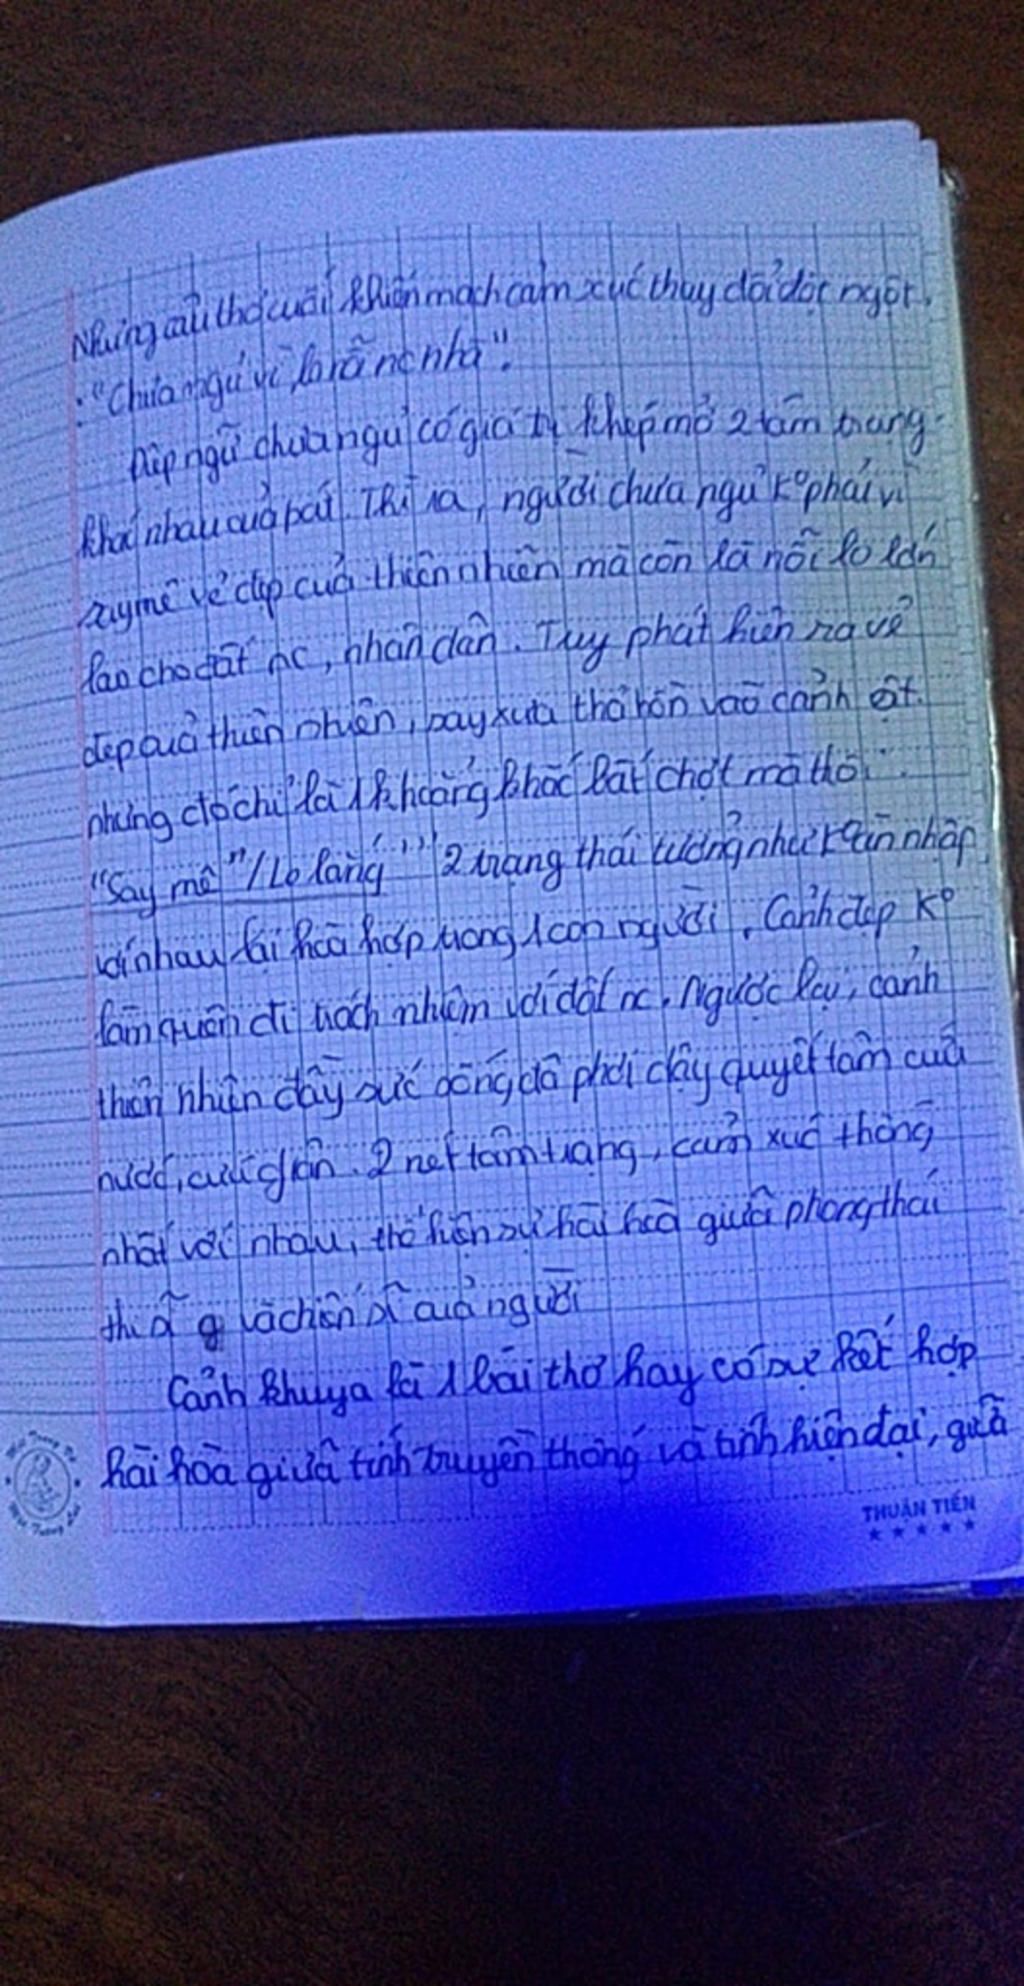 Nhưng câu thơ cuối khiến mạch cảm xúc thay đổi đột ngột.
"Chưa ngủ vì lo nỗi nc nhà".
Điệp ngữ chưa ngủ có giá trị khép mở 2 tâm trạng
khác nhau của bác. Thì ra, người chưa ngủ kº phải vì
say mê vẻ đẹp của thiên nhiên mà còn là nỗi lo lớn
lao cho đất nc, nhân dân. Tuy phát hiện ra vẻ
đẹp của thiên nhiên, say sưa thả hồn vào cảnh vật.
nhưng đó chỉ là 1 khoảng khắc bất chợt mà thôi.
"Say mê"/"Lo lắng" 2 trạng thái tưởng như nhập
với nhau lại hoà hợp trong 1 con người. Cảnh đẹp kº
làm quên đi trách nhiệm với đất nc. Ngược lại, cảnh
thiên nhiên đầy sức sống đã phơi dậy quyết tâm cứu
nước, cứu dân. 2 nét tâm trạng, cảm xúc thống
nhất với nhau, thể hiện sự hài hoà giữa phong thái
thi sĩ và chiến sĩ của người
Cảnh khuya là 1 bài thơ hay có sự kết hợp
hài hòa giữa tính truyền thống và tính hiện đại, giữa
THUẬN TIẾN